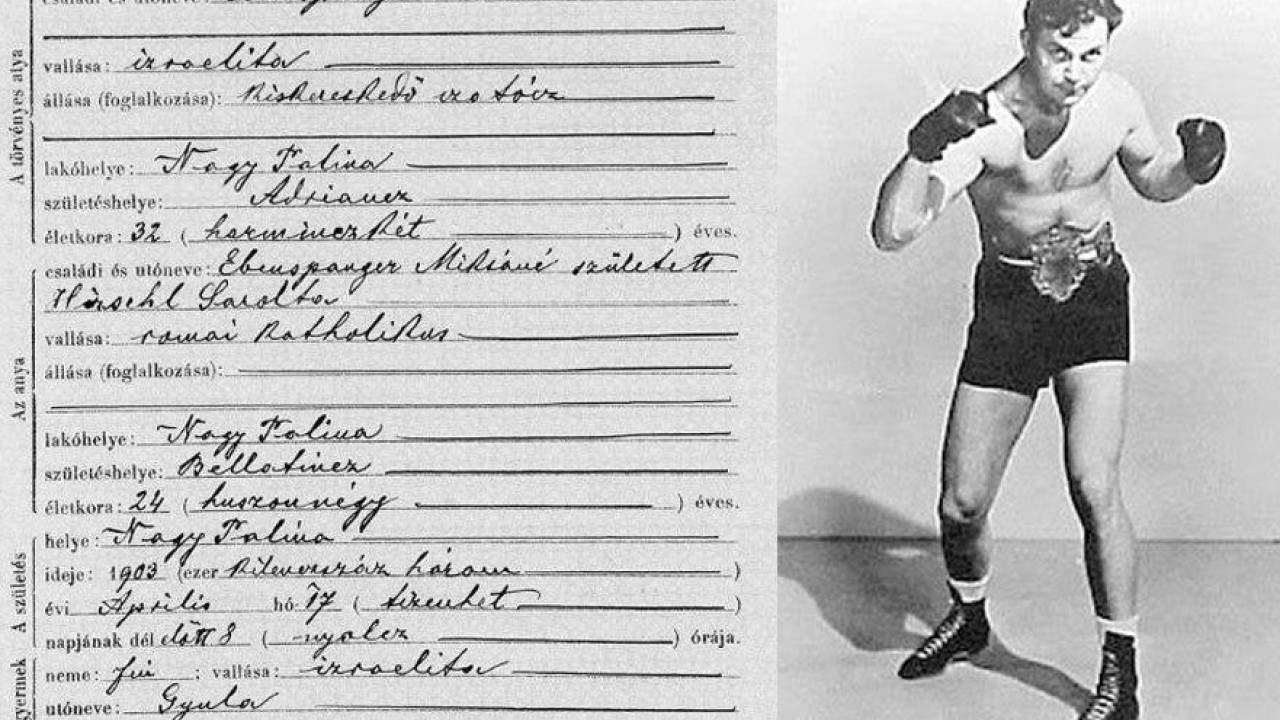 családi és utóneve:
vallása: izraelita
állása (foglalkozása): kiskereskedő
A törvényes atya
lakóhelye: Nagy Faliva
születéshelye: Adriancz
életkora: 32 (harminczkét) éves.
családi és utóneve: Ebenspanger Miksáné született
Hirschl Sarolta
vallása: romai katholikus
állása (foglalkozása):
Az anya
lakóhelye: Nagy Faliva
születéshelye: Bellatincz
életkora: 24 (huszonnégy) éves.
helye: Nagy Faliva
A születés
ideje: 1903 (ezer kilenczszáz három)
évi Április hó: 17 (tizenhet)
napjának dél előtt 8 (nyolcz) órája.
gyermek
neme: fiú; vallása: izraelita
utóneve: Gyula